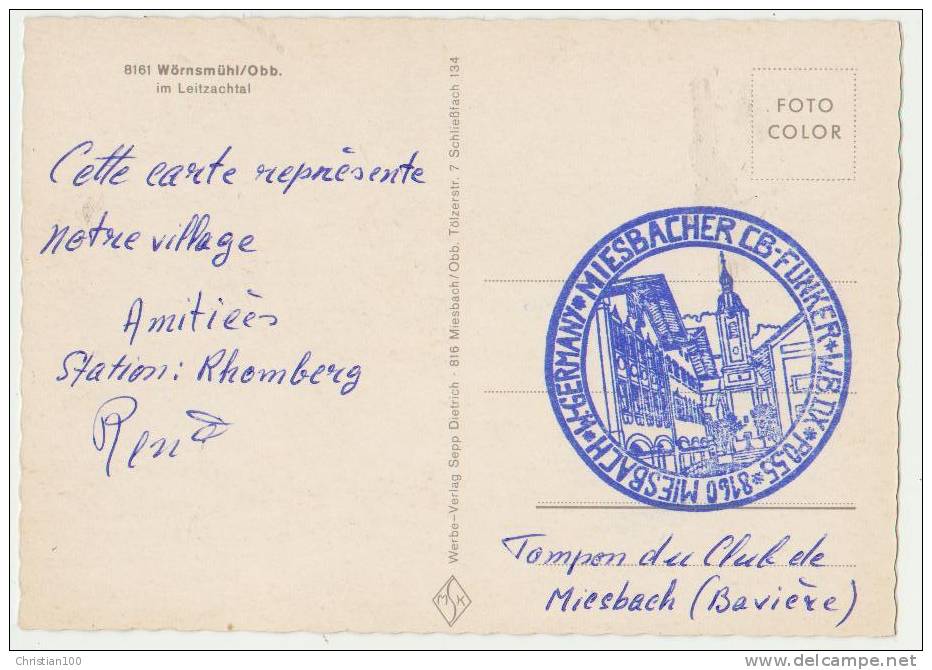 8161 Wörnsmühl/Obb.
im Leitzachtal
Cette carte représente
notre village
Amitiées
Station: Rhomberg
René
Werbe-Verlag Sepp Dietrich - 816 Miesbach/Obb. Tölzerstr. 7 Schließfach 134
MSH
FOTO
COLOR
MIESBACHER CB-FUNKER * MB.DX * PO.55 * 8160 MIESBACH * W.GERMANY *
Tampon du Club de
Miesbach (Bavière)
Christian100
delcampe.net